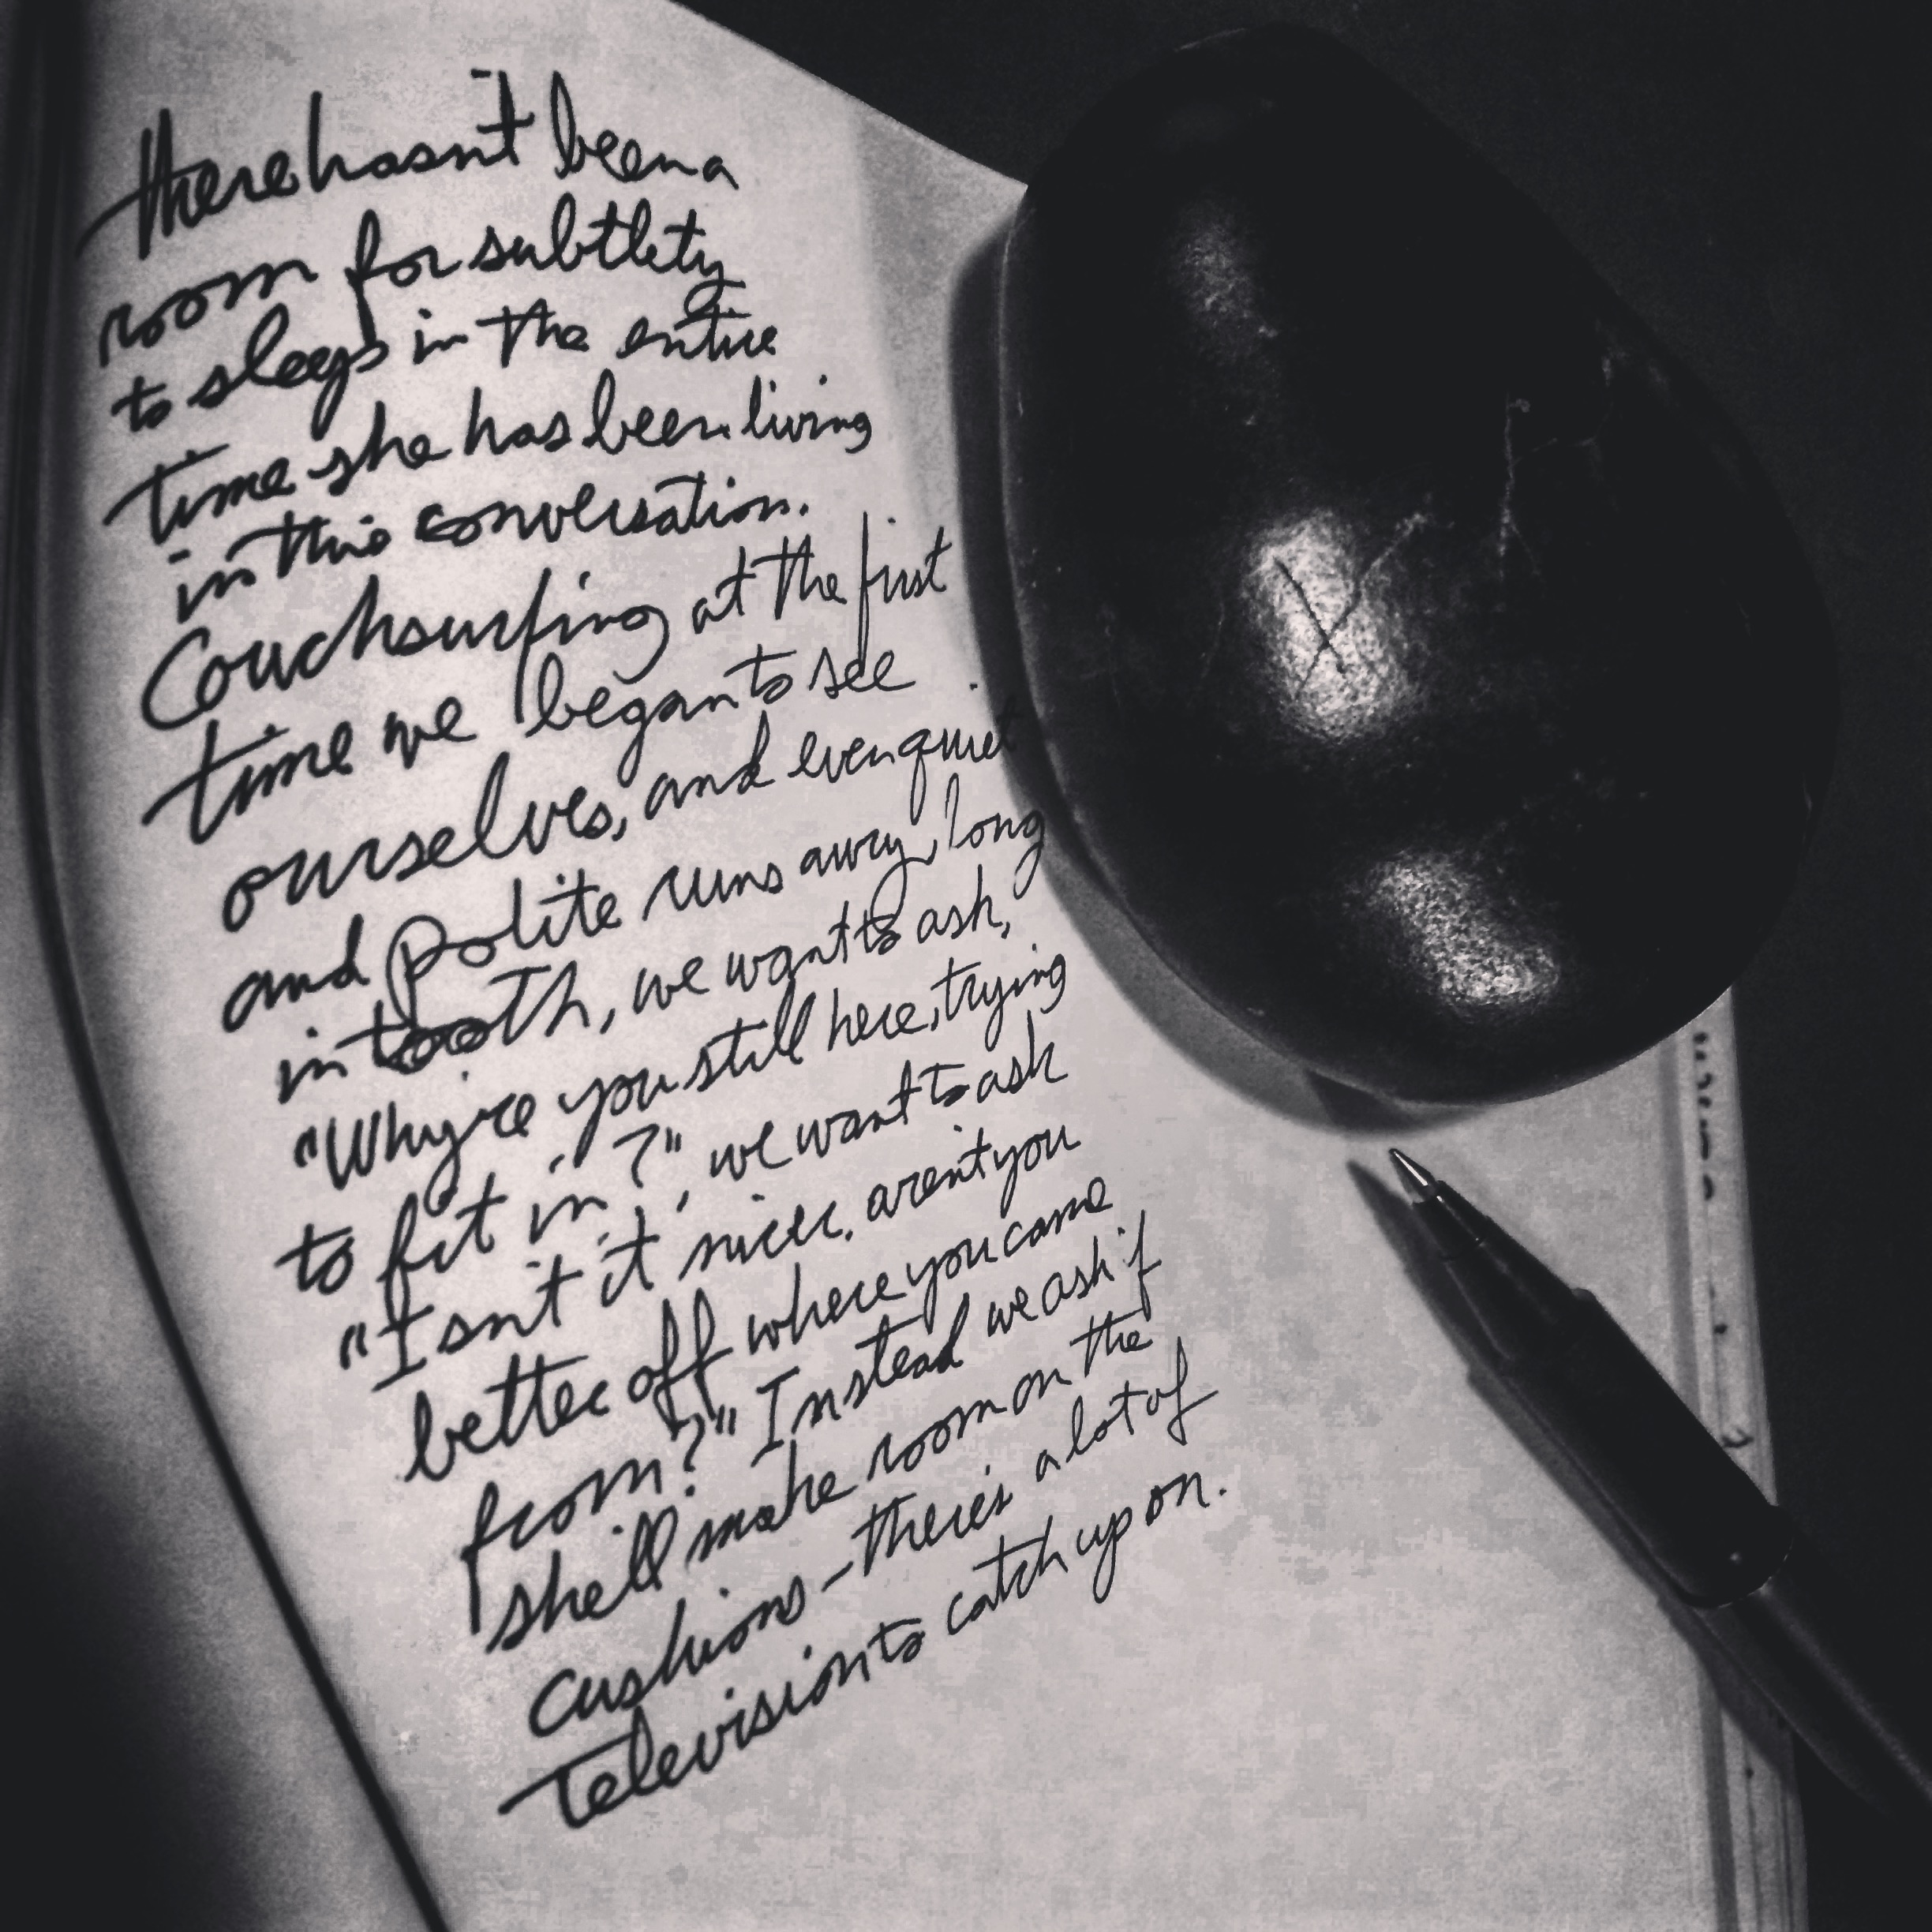 there hasn't been a
room for subtlety
to sleep in the entire
time she has been living
in this conversation.
Couchsurfing at the first
time we began to see
ourselves, and even quiet
and polite runs awry, long
in tooth, we want to ask,
"Why're you still here, trying
to fit in?", we want to ask
"Isn't it nicer, aren't you
better off where you came
from?" Instead we ask if
she'll make room on the
cushions – there's a lot of
Television to catch up on.